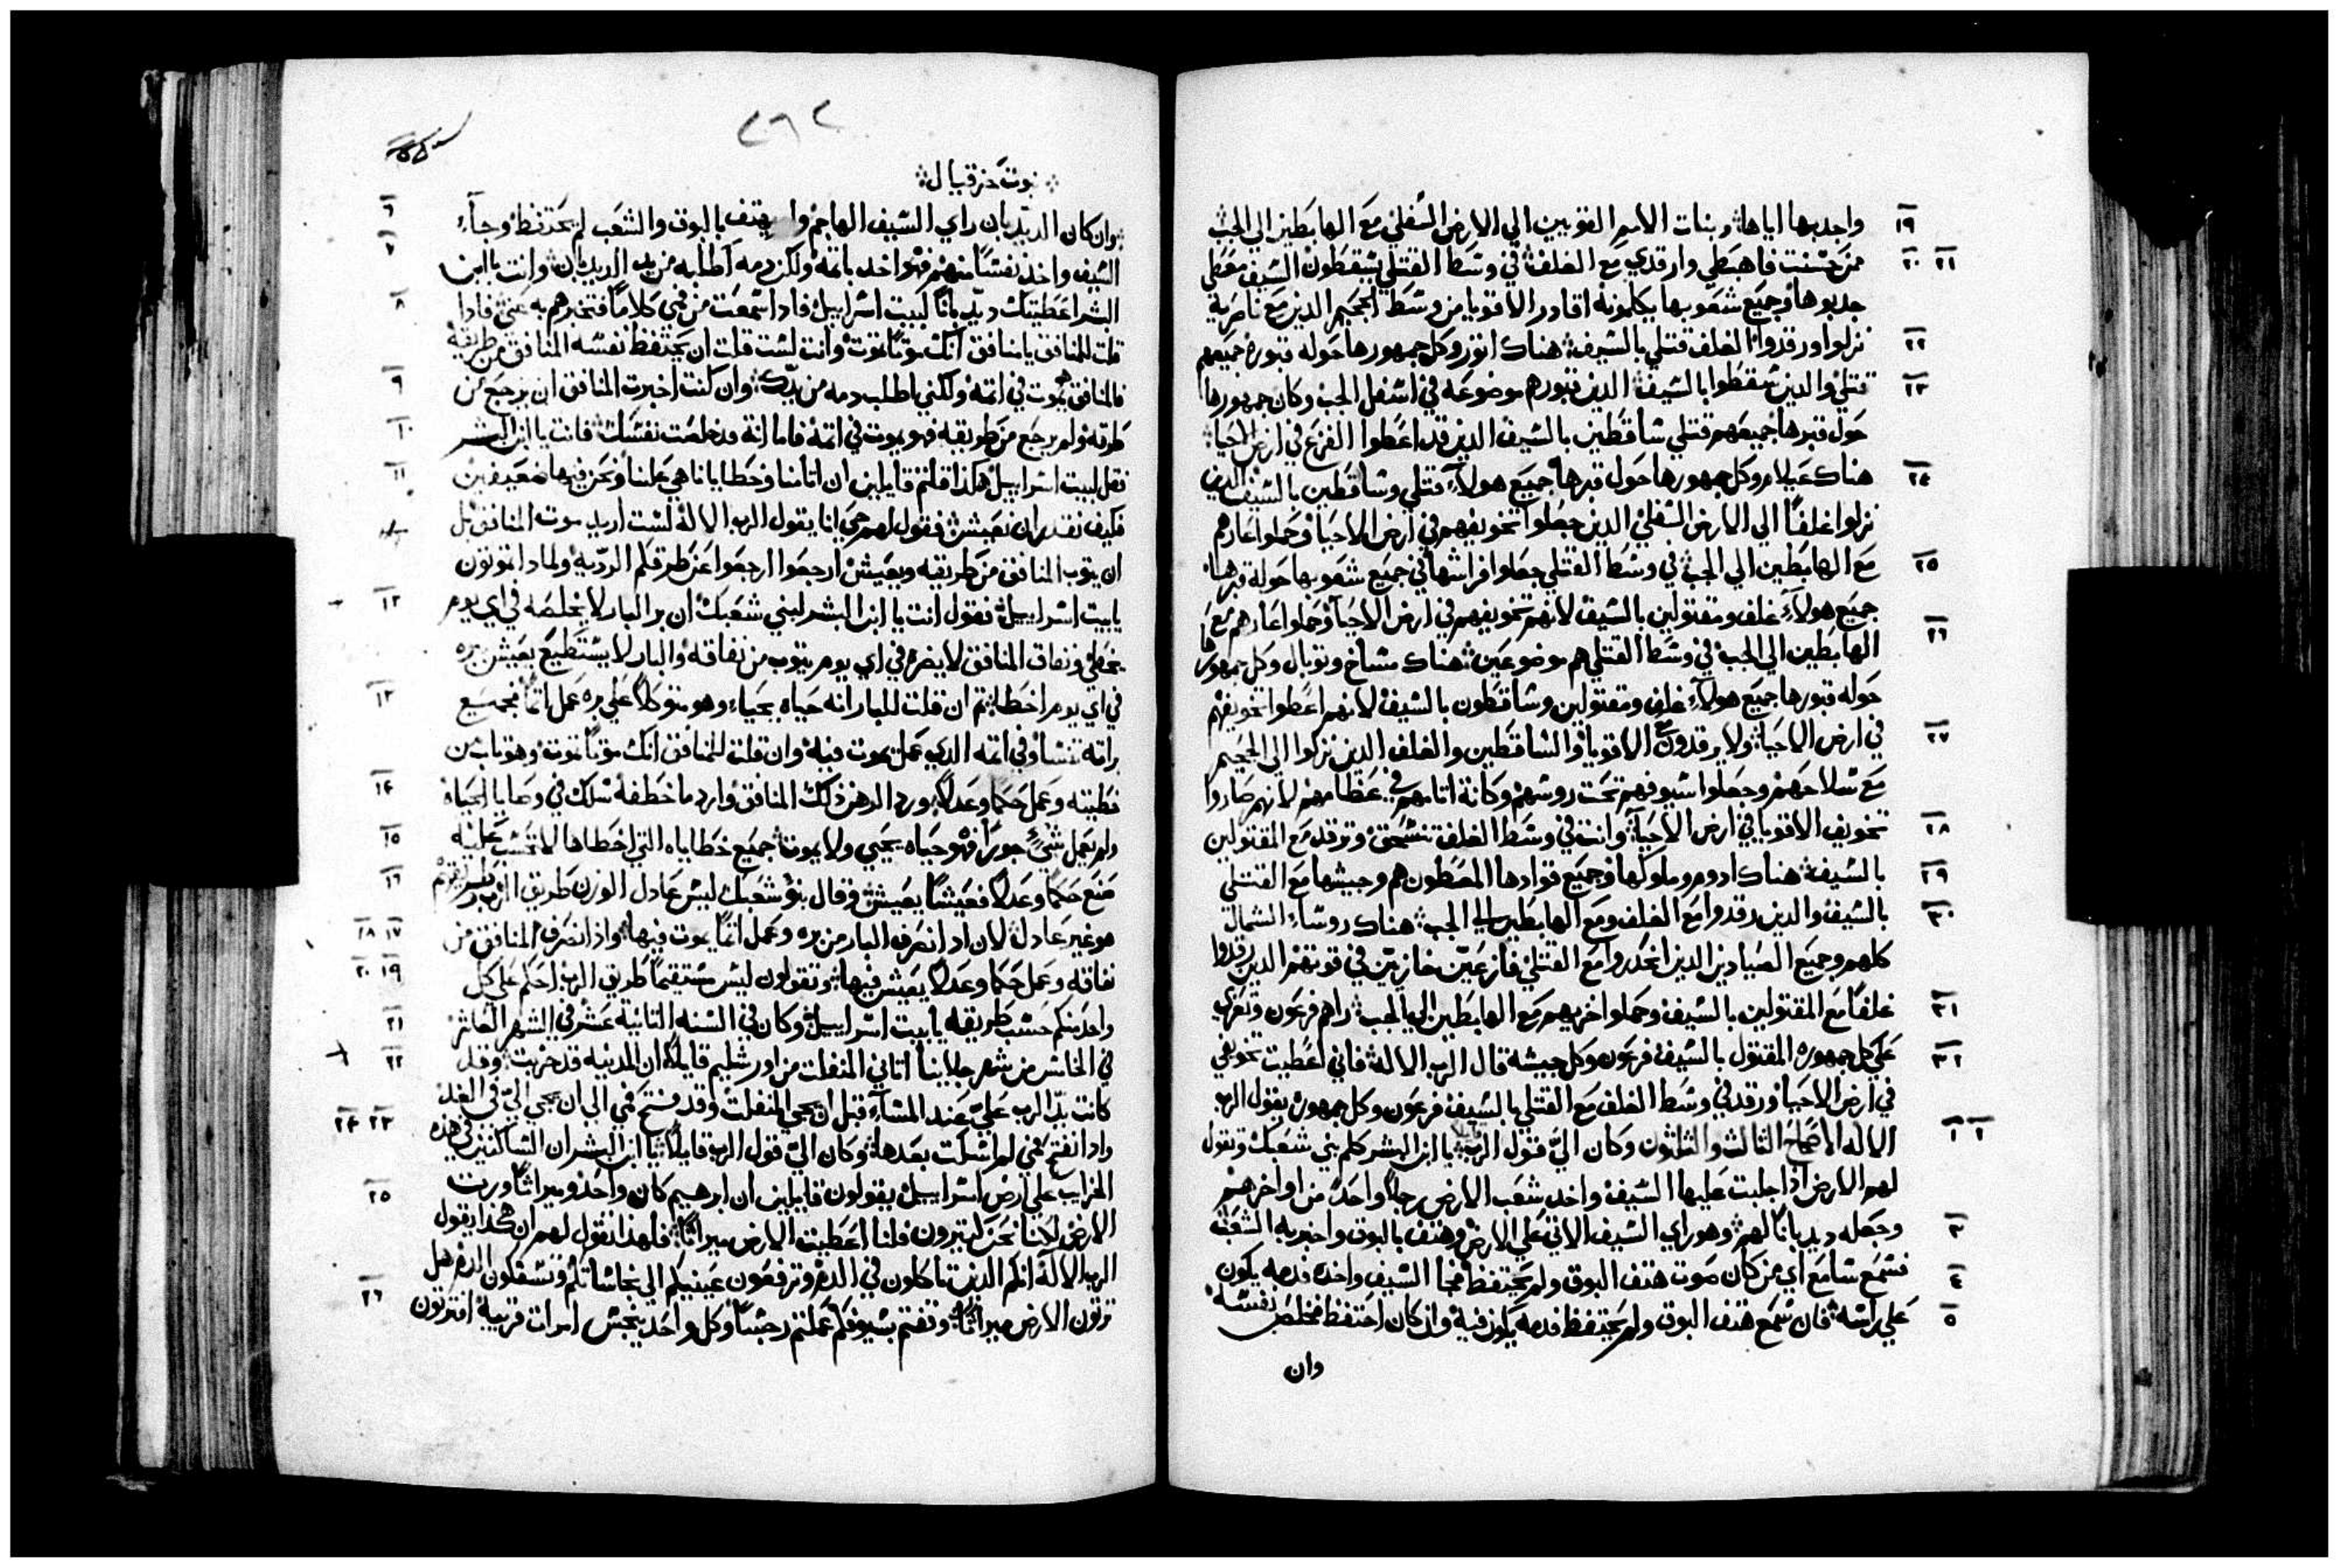 ١٩ واجدبها اياها وبنات الامم القويين الي الارض السفلي مع الهابطين الي الجب
٢٠ ٢١ ممن حسنت فاهبطي وارقدي مع الغلف في وسط القتلي يسقطون السيف معطي
جدبوها وجميع شعوبها يكلمونه اقاور الاقويا من وسط الجحيم الدين مع ناصريه
٢٢ نزلوا ورقدوا الغلف قتلي بالسيف هناك اتور وكل جمهورها حوله قبوره جميعهم
٢٣ قتلي والدين سقطوا بالسيف الدين قبورهم موضوعه في اسفل الجب وكان جمهورها
حول قبرها جميعهم قتلي ساقطين بالسيف الدين قد اعطوا الفزع في ارض الاحيا
٢٤ هناك عيلام وكل جمهورها حول قبرها جميع هولآء قتلي وساقطين بالسيف الدين
نزلوا غلفاً الي الارض السفلي الدين جعلوا تخويفهم في ارض الاحيا وحملوا عارهم
٢٥ مع الهابطين الي الجب في وسط القتلي جعلوا فراشها في جميع شعوبها حوله قبرها
جميع هولآء غلف ومقتولين بالسيف لانهم تخويفهم في ارض الاحيا وحملوا عارهم مع
٢٦ الهابطين الي الجب في وسط القتلي هم موضوعين هناك مشاخ وتوبال وكل جمهورها
حوله قبورها جميع هولآء غلف ومقتولين وساقطون بالسيف لانهم اعطوا تخويفهم
٢٧ في ارض الاحيا ولا يرقدون مع الاقويا والساقطين والغلف الدين نزلوا الي الجحيم
مع سلاحهم وجعلوا سيوفهم تحت روسهم وكانة اتامهم في عظامهم لانهم صاروا
٢٨ تخويف الاقويا في ارض الاحيا وانت في وسط الغلف تنسحق وترقد مع المقتولين
٢٩ بالسيف هناك ادوم وملوكها وجميع قوادها المعطون هم وجيشها مع القتلي
٣٠ بالسيف والدين رقدوا مع الغلف ومع الهابطين الي الجب هناك روساء الشمال
كلهم وجميع الصيادين الدين انحدروا مع القتلي فازعين خازيين في قوتهم الدين رقدوا
٣١ غلفاً مع المقتولين بالسيف وحملوا خزيهم مع الهابطين الي الجب راهم فرعون وتعزي
٣٢ علي كل جمهوره المقتول بالسيف فرعون وكل جيشه قال الرب الاله فاني اعطيت تخويفي
في ارض الاحيا ورقد في وسط الغلف مع القتلي بالسيف فرعون وكل جمهوره يقول الرب
١ ٢ الاله الاصحاح الثالث والثلثون وكان اليّ قول الرب قايلا يا ابن البشر كلم بني شعبك وتقول
لهم الارض اذا جلبت عليها السيف واخد شعب الارض رجلاً واحداً من اواخرهم
٣ وجعله ديدباناً لهم وهو راي السيف الاتي علي الارض وهتف بالبوق واخبر به الشعب
٤ فسمع سامع اي من كان صوت هتف البوق ولم يحتفظ فجا السيف واخده فدمه يكون
٥ علي راسه فان سمع هتف البوق ولم يحتفظ فدمه يكون فيه وان كان احتفظ فخلص نفسه
وان
٢٦٢
نبوت حزقيال
٦ وان كان الديدبان راي السيف الهاجم ولم يهتف بالبوق والشعب لم يحتفظ وجآء
٧ السيف واخد نفساً منهم فهو اخد باتمه ولكن دمه اطلبه من يد الديدبان وانت يا ابن
٨ البشر اعطيتك ديدباناً لبيت اسراييل فادا سمعت من فمي كلاماً فتخبرهم به عني فادا
قلت للمنافق يا منافق انك موتاً تموت وانت لست قلت ان يحتفظ نفسه المنافق من طريقه
٩ فالمنافق يموت في اتمه ولكني اطلب دمه من يدك وان كنت اخبرت المنافق ان يرجع عن
١٠ طرقه ولم يرجع من طريقه فهو يموت في اتمه فاما انة قد خلصت نفسك فانت يا ابن البشر
١١ تقل لبيت اسراييل هكذا قلتم قايلين ان اتامنا وخطايانا هي علينا ونحن فيها مضعيفين
فكيف نقدر ان نعيش فقول لهم حي انا يقول الرب الاله لست اريد موت المنافق بل
ان يتوب المنافق من طريقه ويعيش ارجعوا ارجعوا عن طرقكم الرديه ولمادا تموتون
١٢ يا بيت اسراييل فقول انت يا ابن البشر لبني شعبك ان بر البار لا يخلصه في اي يوم
يخطي ونفاق المنافق لا يضره في اي يوم يتوب من نفاقه والبار لا يستطيع يعيش ببره
١٣ في اي يوم اخطا تم ان قلت للبار انه حياه يحيا وهو متوكلاً علي بره عمل اتماً فجميع
براته تنسا وفي اتمه الدي عمل يموت فيه وان قلت للمنافق انك موتاً تموت وهو تاب من
١٤ خطيته وعمل حكماً وعدلاً ورد الرهن ذلك المنافق وارد ما خطفه سلك في وصايا الحياه
١٥ ولم يعمل شيء جوراً فهو حياه يحيي ولا يموت جميع خطاياه التي اخطاها لا تحسب عليه
١٦ صنع حكماً وعدلاً فعيشاً يعيش وقال بنو شعبك ليس عادل الوزن طريق الرب وطريقهم
١٧ ١٨ هو غير عادل لان ادا انصرف البار من بره وعمل اتماً يموت فيها واذا انصرف المنافق من
١٩ ٢٠ نفاقه وعمل حكماً وعدلاً يعيش فيها وتقولون ليس مستقيماً طريق الرب احكم علي كل
٢١ واحد منكم حسب طريقه يا بيت اسراييل وكان في السنه التانية عشر في الشهر العاشر
٢٢ في الخامس من شهر جلاينا اتاني المنفلت من اورشليم قايلاً ان المدينه قد خربت وقد
كانت يد الرب عليّ عند المسآء قبل ان يجي المنفلت وقد فتح فمي الي ان يجي اليّ في الغد
٢٣ ٢٤ وادا انفتح فمي لم اسكت بعدها وكان اليّ قول الرب قايلاً يا ابن البشر ان الساكنين في هذه
الخرايب علي ارض اسراييل يقولون قايلين ان ابرهيم كان واحد وميراثاً ورت
٢٥ الارض لكننا نحن كتيرون فلنا اعطيت الارض ميراثاً فلهذا تقول لهم ان هكذا يقول
الرب الاله انكم الدين تاكلون في الدم وترفعون عينيكم الي نجاساتكم وتسفكون الدم هل
٢٦ ترتون الارض ميراثاً وقفتم بسيوفكم عملتم رجساً وكل واحد ينجس امرات قريبه افترتون